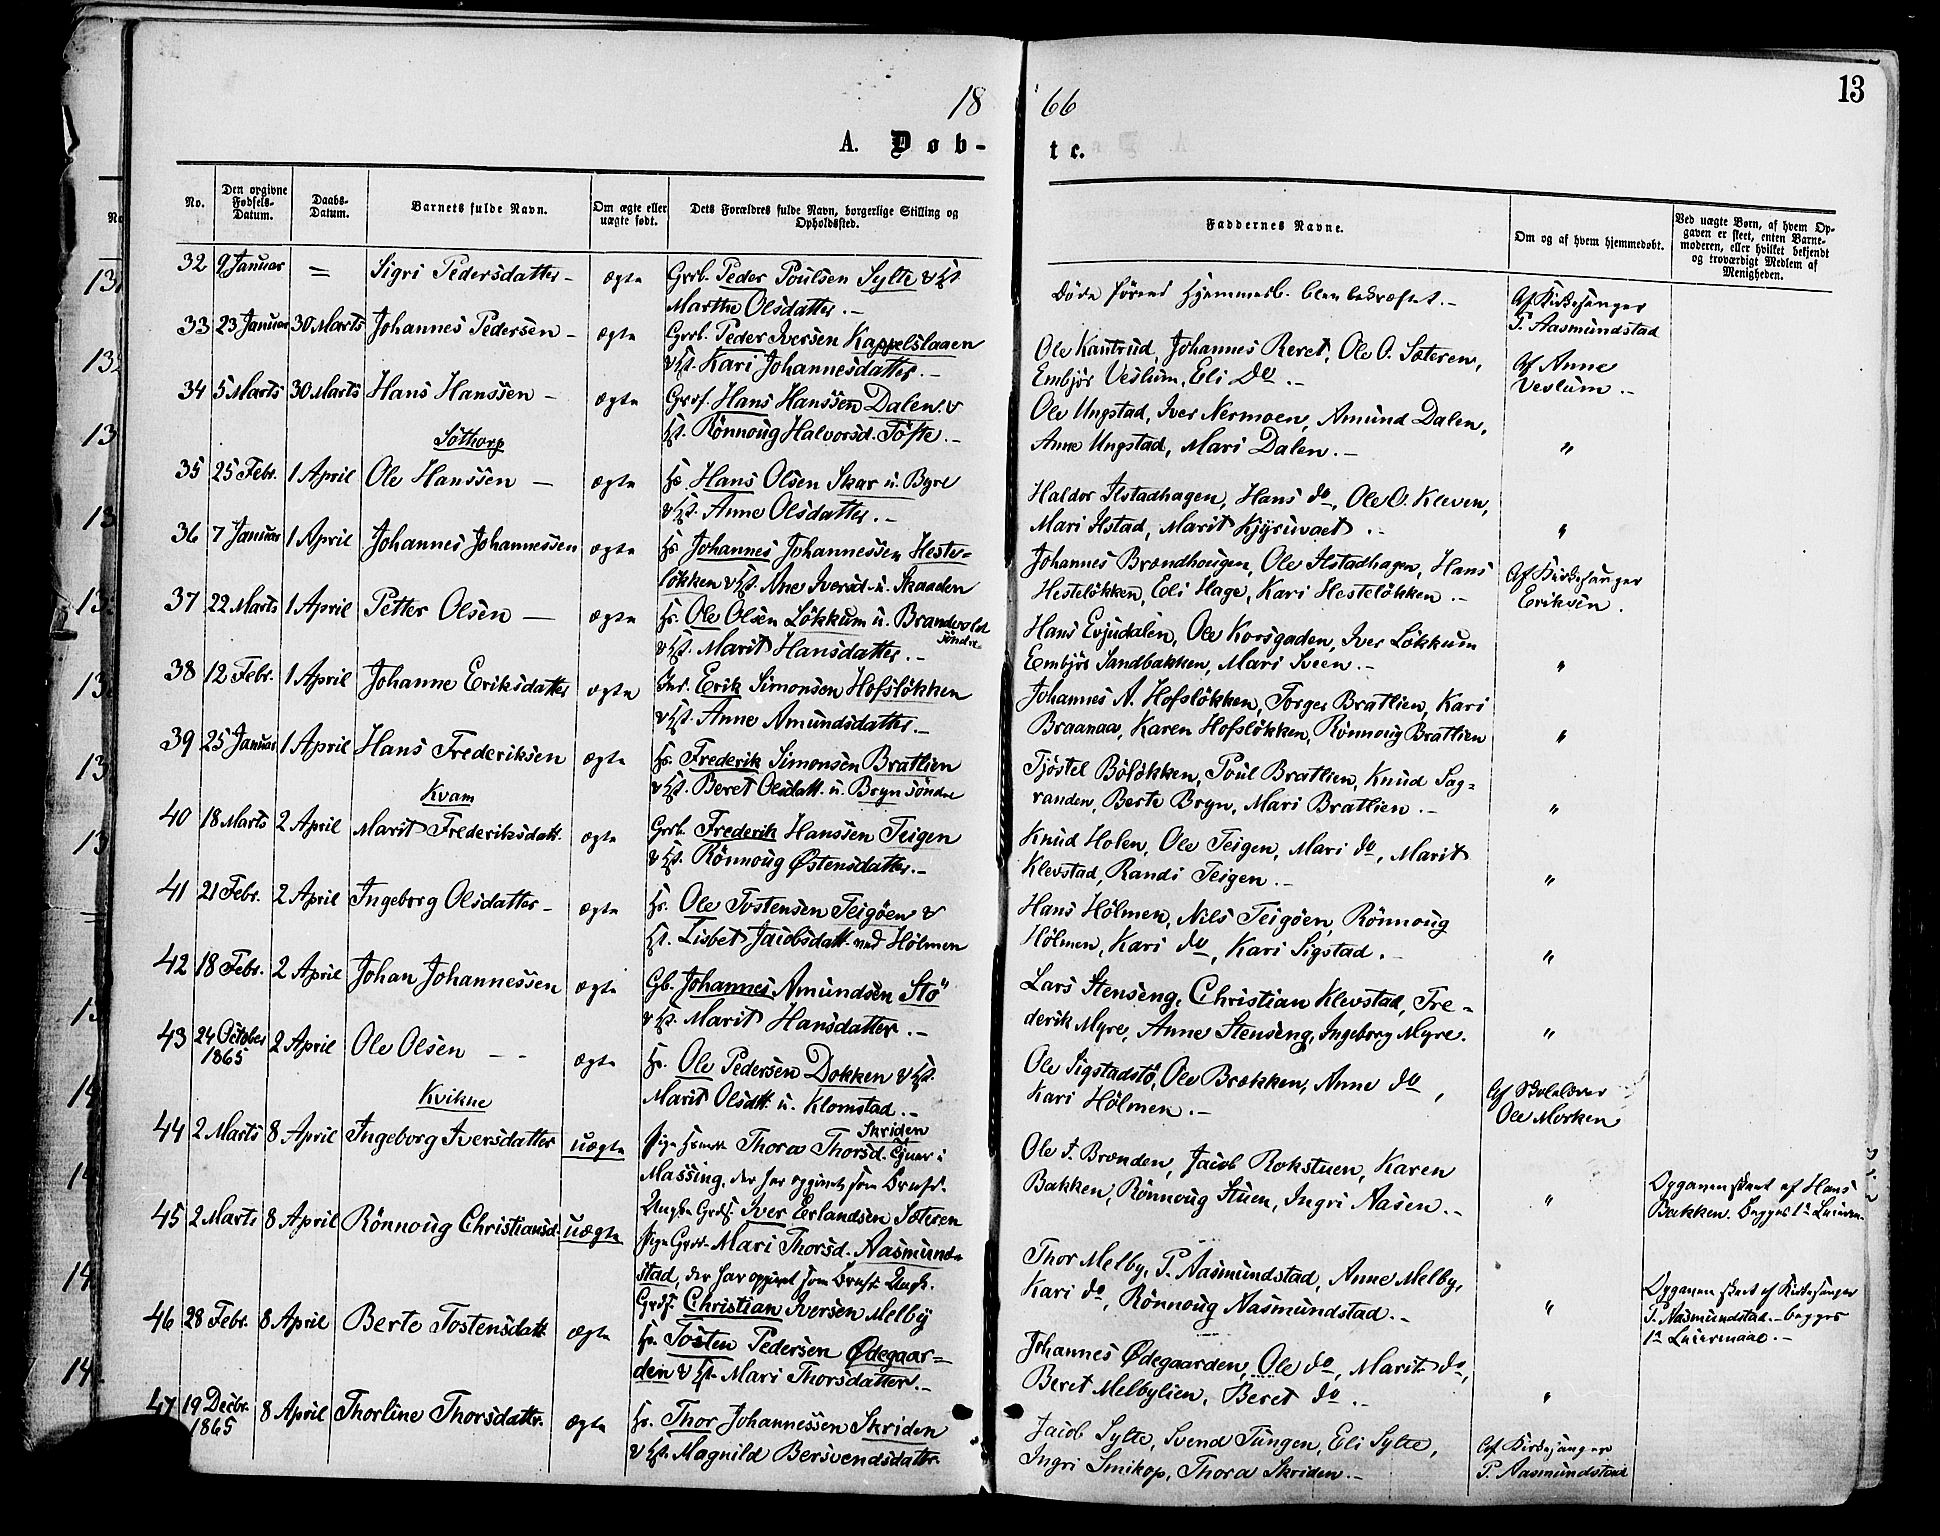 18 66
13
A. Døb- te.
No.
Den opgivne Fødsels-Datum.
Daabs-Datum.
Barnets fulde Navn.
Om ægte eller uægte født.
Dets Forældres fulde Navn, borgerlige Stilling og Opholdssted.
Faddernes Navne.
Om og af hvem hjemmedøbt.
Ved uægte Børn, af hvem Opgaven er skeet, enten Barnemoderen, eller hvilket bekjendt og troværdigt Medlem af Menigheden.
32 9 Januar = Sigri Pedersdatter - ægte Grb. Peder Poulsen Sylte & Hst
Marthe Olsdatter. -
Døde førend Hjemmed. blev bekræftet. -
Af Kirkesanger
P. Aasmundstad
33 23 Januar 30 Marts Johannes Pedersen - ægte Grb. Peder Iversen Kappelslaaen
& Hst. Kari Johannesdatter. -
Ole Kantrud, Johannes Reret, Ole O. Sæteren,
Embjør Veslum, Eli do. -
Af Anne
Veslum. -
34 5 Marts 30 Marts Hans Hanssen - ægte Grdf. Hans Hanssen Dalen &
Hst. Rönnoug Halvorsd. Töfte. -
Ole Ungstad, Iver Nermoen, Amund Dalen,
Anne Ungstad, Mari Dalen. -
"
Sothorp
35 25 Febr. 1 April Ole Hanssen - ægte Hs. Hans Olsen Skar u. Byre
& Hst. Anne Olsdatter. -
Haldor Ilstadhagen, Hans do, Ole O. Kleven,
Mari Ilstad, Marit Kjyruvaet. -
"
36 7 Januar 1 April Johannes Johannessen ægte Hs. Johannes Johannessen Heste-
løkken & Hst. Ane Iversd. u. Skaaden
Johannes Brændhougen, Ole Ilstadhagen, Hans
Hesteløkken, Eli Hage, Kari Hesteløkken. -
Af Kirkesanger
Eriksen.
37 22 Marts 1 April Petter Olsen - ægte Hs. Ole Olsen Løkkum u. Brandvold
søndre
& Hst. Marit Hansdatter. -
Hans Evjudalen, Ole Korsgaden, Iver Løkkum
Embjør Sandbakken, Mari Sveen. -
"
38 12 Febr. 1 April Johanne Eriksdatter ægte Inr. Erik Simonsen Hofsløkken
& Hst. Anne Amundsdatter. -
Johannes A. Hofsløkken, Torger Bratlien, Kari
Braanaa, Karen Hofsløkken, Rønnoug Bratlien
"
39 25 Januar 1 April Hans Frederiksen ægte Hs. Frederik Simonsen Bratlien
& Hst. Beret Olsdatt. u. Bryn søndre
Tjöstel Böløkken, Poul Bratlien, Knud Sag-
randen, Berte Bryn, Mari Bratlien. -
"
Kvam
40 18 Marts 2 April Marit Frederiksdatt. ægte Grb. Frederik Hanssen Teigen
& Hst. Rönnoug Østensdatter. -
Knud Holen, Ole Teigen, Mari do, Marit
Klevstad, Randi Teigen. -
"
41 21 Febr. 2 April Ingeborg Olsdatter - ægte Hs. Ole Tostensen Teigøen &
Hst. Lisbet Jacobsdatt. ned Hölmen
Hans Hölmen, Nils Teigöen, Rönnoug
Hölmen, Kari do, Kari Sigstad. -
"
42 18 Febr. 2 April Johan Johannessen ægte Gb. Johannes Amundsen Stö
& Hst. Marit Hansdatter. -
Lars Stenseng, Christian Klevstad, Fre-
derik Myre, Anne Stenseng, Ingeborg Myre.
"
43 24 October 1865 2 April Ole Olsen - - ægte Hs. Ole Pedersen Dokken & Hst.
Marit Olsdtt. u. Klomstad. -
Ole Sigstadstö, Ole Brækken, Anne do,
Kari Hölmen. -
Af Skolelærer
Ole Morken
Kvikne
44 2 Marts 8 April Ingeborg Iversdatter uægte Pige Thora Thorsd. Skriden
Massing, der har opgivet som Barnef.
Ungk. Grdf. Iver Erlandsen Sæteren
Ole I. Brænden, Jacob Rokstuen, Karen
Bakken, Rönnoug Stuen, Ingri Aasen. -
"
Opgaven skeet af Hans
Bakken. Begges 1ste Leierm.
45 2 Marts 8 April Rönnoug Christiansd. uægte Pige Mari Thorsd. Aasmund-
stad, der har opgivet som Barnef. Ungk.
Grdf. Christian Iversen Melby
Thor Melby, P. Aasmundstad, Anne Melby,
Kari do, Rönnoug Aasmundstad. -
"
Opgaven skeet af Kirkesanger
P. Aasmundstad. - begges
1ste Leiermaal. -
46 28 Febr. 8 April Berte Tostensdatt. ægte Hs. Tosten Pedersen Ødegaar-
den & Hst. Mari Thorsdatter. -
Johannes Ødegaarden, Ole do, Marit do,
Beret Melbylien, Beret do. -
"
47 19 Decbr. 1865 8 April Thorline Thorsdattr. ægte Hs. Thor Johannessen Skriden
& Hst. Magnild Bersvendsdattr.
Jacob Sylte, Svend Tungen, Eli Sylte,
Ingri Smikop, Thora Skriden. -
Af Kirkesanger
P. Aasmundstad